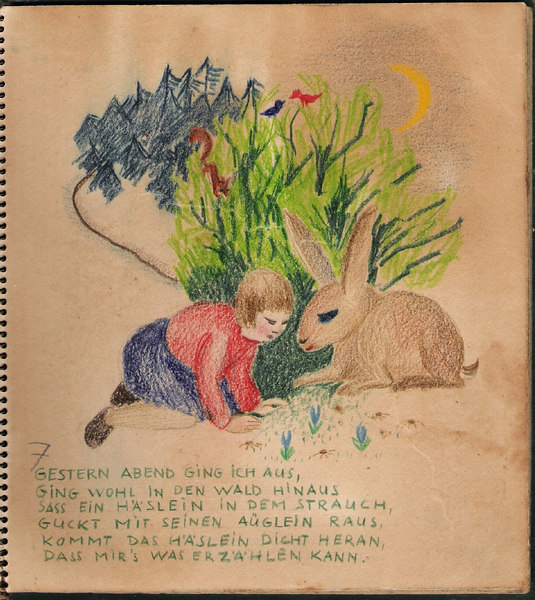 7
GESTERN ABEND GING ICH AUS,
GING WOHL IN DEN WALD HINAUS
SASS EIN HÄSLEIN IN DEM STRAUCH,
GUCKT MIT SEINEN AÜGLEIN RAUS,
KOMMT DAS HÄSLEIN DICHT HERAN,
DASS MIR'S WAS ERZÄHLEN KANN.